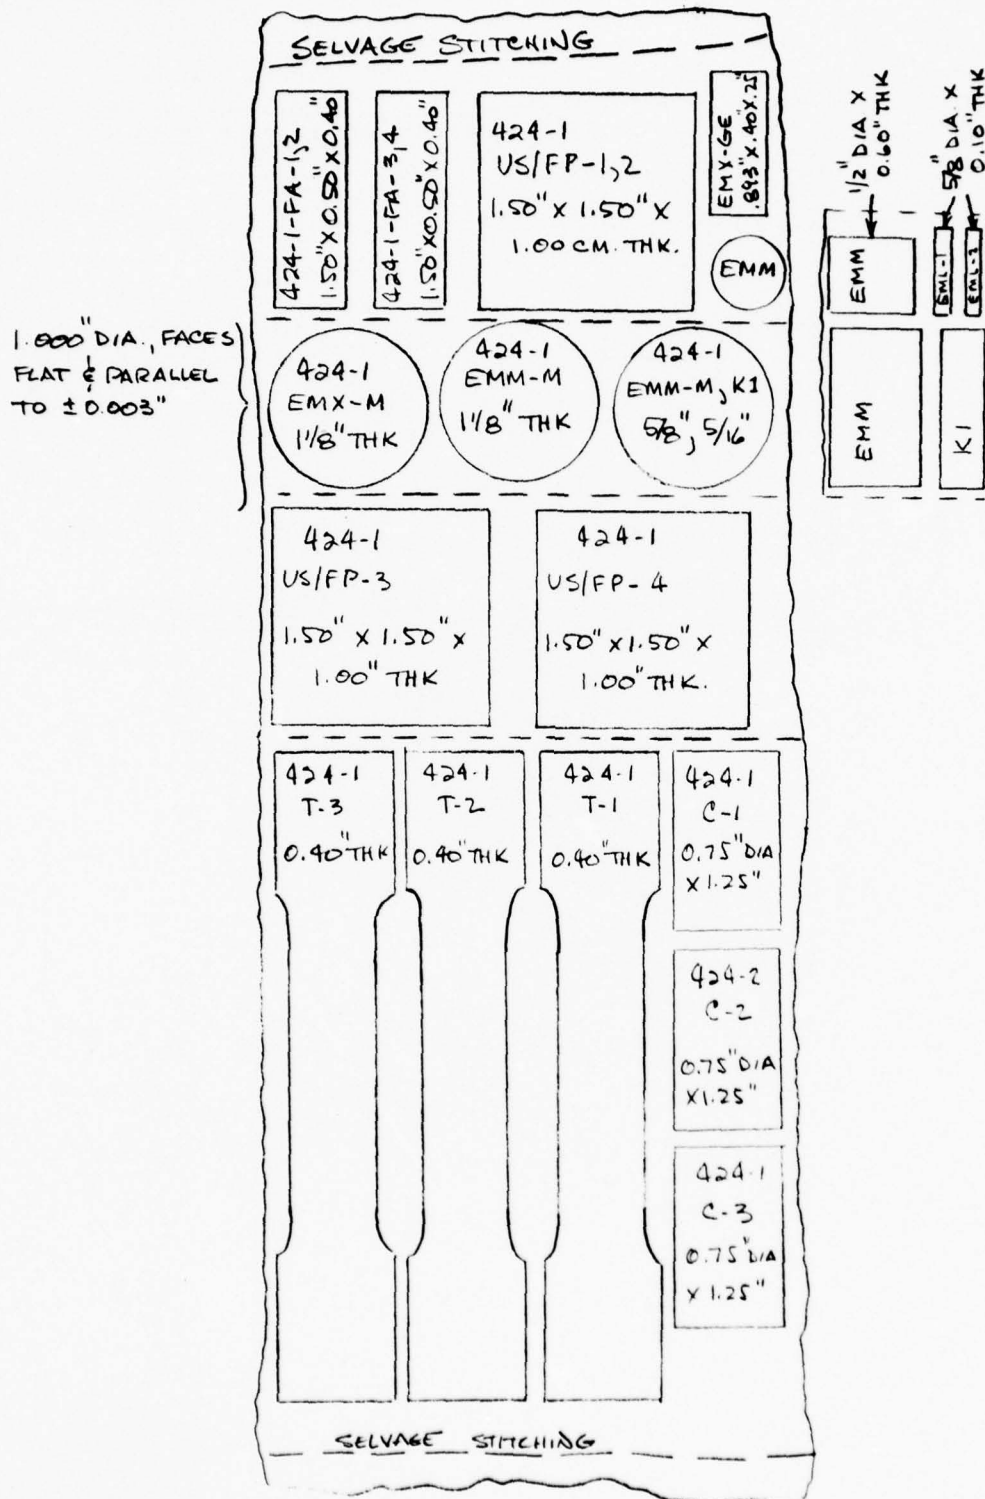 SELVAGE STITCHING
424-1-FA-1,2
1.50" X 0.50" X 0.40"
424-1-FA-3,4
1.50" X 0.50" X 0.40"
424-1
US/FP-1,2
1.50" X 1.50" X
1.00 CM. THK.
EMX-GE
.893" X .40 X .25"
EMM
1/2" DIA X
0.60" THK
5/8" DIA. X
0.10" THK
EMM
EML-1
EML-2
EMM
K1
1.000" DIA., FACES
FLAT & PARALLEL
TO ± 0.003"
424-1
EMX-M
1 1/8" THK
424-1
EMM-M
1 1/8" THK
424-1
EMM-M, K1
5/8", 5/16"
424-1
US/FP-3
1.50" X 1.50" X
1.00" THK
424-1
US/FP-4
1.50" X 1.50" X
1.00" THK.
424-1
T-3
0.40" THK
424-1
T-2
0.40" THK
424-1
T-1
0.40" THK
424-1
C-1
0.75" DIA
X 1.25"
424-2
C-2
0.75" DIA
X 1.25"
424-1
C-3
0.75" DIA
X 1.25"
SELVAGE STITCHING